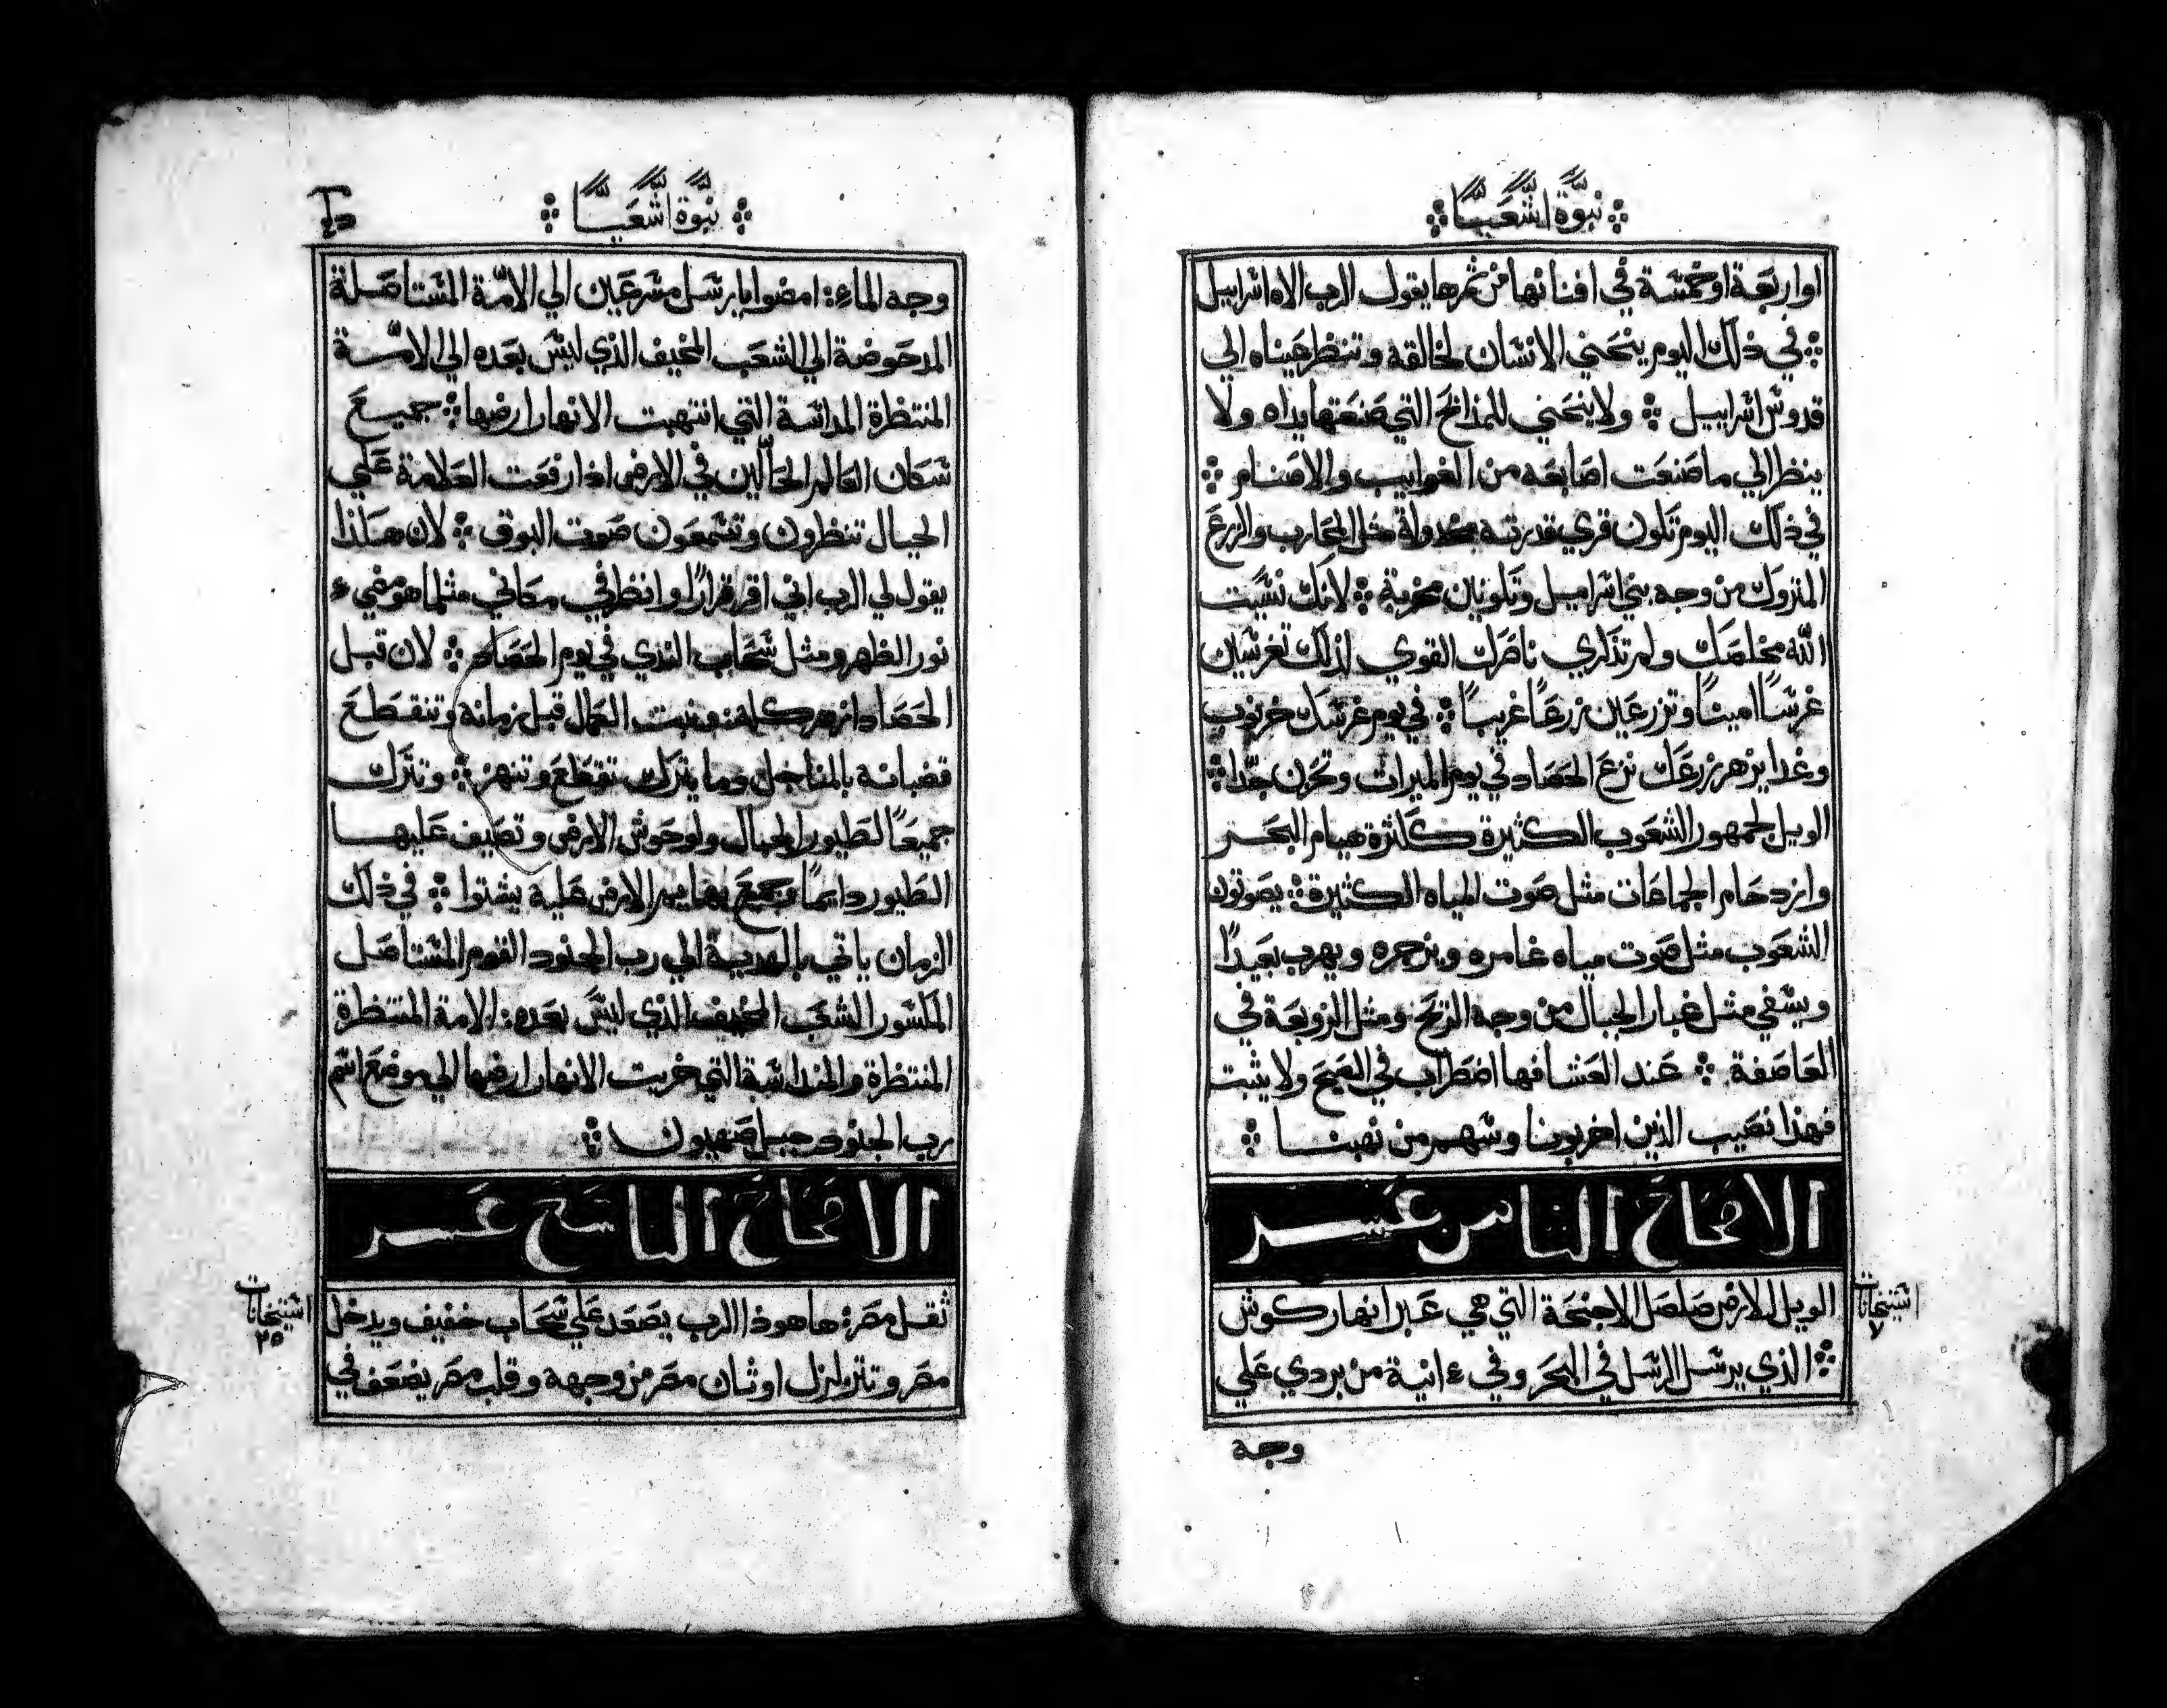 نبوة اشعيا
او اربعة او خمسة في افنانها من ثمرها يقول الرب الاه اسراييل
في ذلك اليوم ينحني الانسان لخالقه وتنظر عيناه الي
قدوس اسراييل ولا ينحني للمذابح التي صنعتها يداه ولا
ينظر الي ما صنعت اصابعه من الغوابيب والاصنام
في ذلك اليوم تكون قري قدرته مخدولة مثل المحارب والزرع
المتروك من وجه بني اسراييل وتكونين مخربة لانك نسيت
الله مخلصك ولم تذكري ناصرك القوي لذلك تغرسين
غرسًا امينًا وتزرعين زرعًا غريبًا في يوم غرسك خرنوب
وغدا يزهر زرعك نزع الحصاد في يوم الميرات وتحزن جدًا
الويل لجمهور الشعوب الكثيرة ككثرة هيام البحر
وازدحام الجماعات مثل صوت المياه الكثيرة يصوتون
الشعوب مثل صوت مياه غامره ويزجره ويهرب بعيدًا
ويسفي مثل غبار الجبال من وجه الريح ومثل الزوبعة في
العاصفة عند العشا فها اضطراب في الصبح ولا يثبت
فهذا نصيب الذين اخربونا وسهم من نهبنا
الاصحاح التامن عشر
الويل للارض صلصل الاجنحة التي هي عبر انهار كوش
الذي يرسل الرسل في البحر وفي ءانية من بردي علي
اسينخانات
٧
وجه
نبوة اشعيا
وجه الماء امضوا يا رسل مسرعين الي الامة المستاصلة
المدحوضة الي الشعب المخيف الذي ليس بعده الي الامة
المنتظرة المداسة التي انتهبت الانهار ارضها جميع
سكان العالم الحالين في الارض اذا رفعت العلامة علي
الجبال تنظرون وتسمعون صوت البوق لان هكذا
يقول لي الرب اني اقر قرارًا وانظر في مكاني مثلما هو مضيء
نور الظهر ومثل سحاب الندي في يوم الحصاد لان قبل
الحصاد ازهر كله ونبت الكمال قبل زمانه وتنقطع
قضبانه بالمناجل وما يترك تقطع وتنهز وتترك
جميعًا لطيور الجبال ولوحوش الارض وتصيف عليها
الطيور دايمًا وجميع بهايم الارض عليه يشتوا في ذلك
الزمان ياتي بالهدية الي رب الجنود القوم المستاصل
المكسور الشعب المخيف الذي ليس بعده الامة المنتظرة
المنتظرة والمنداسة التي خربت الانهار ارضها الي موضع اسم
رب الجنود جبل صهيون
الاصحاح التاسع عشر
ثقل مصر ها هوذا الرب يصعد علي سحاب خفيف ويدخل
مصر وتتزلزل اوثان مصر من وجهه وقلب مصر يضعف في
اسينخانات
٢٥